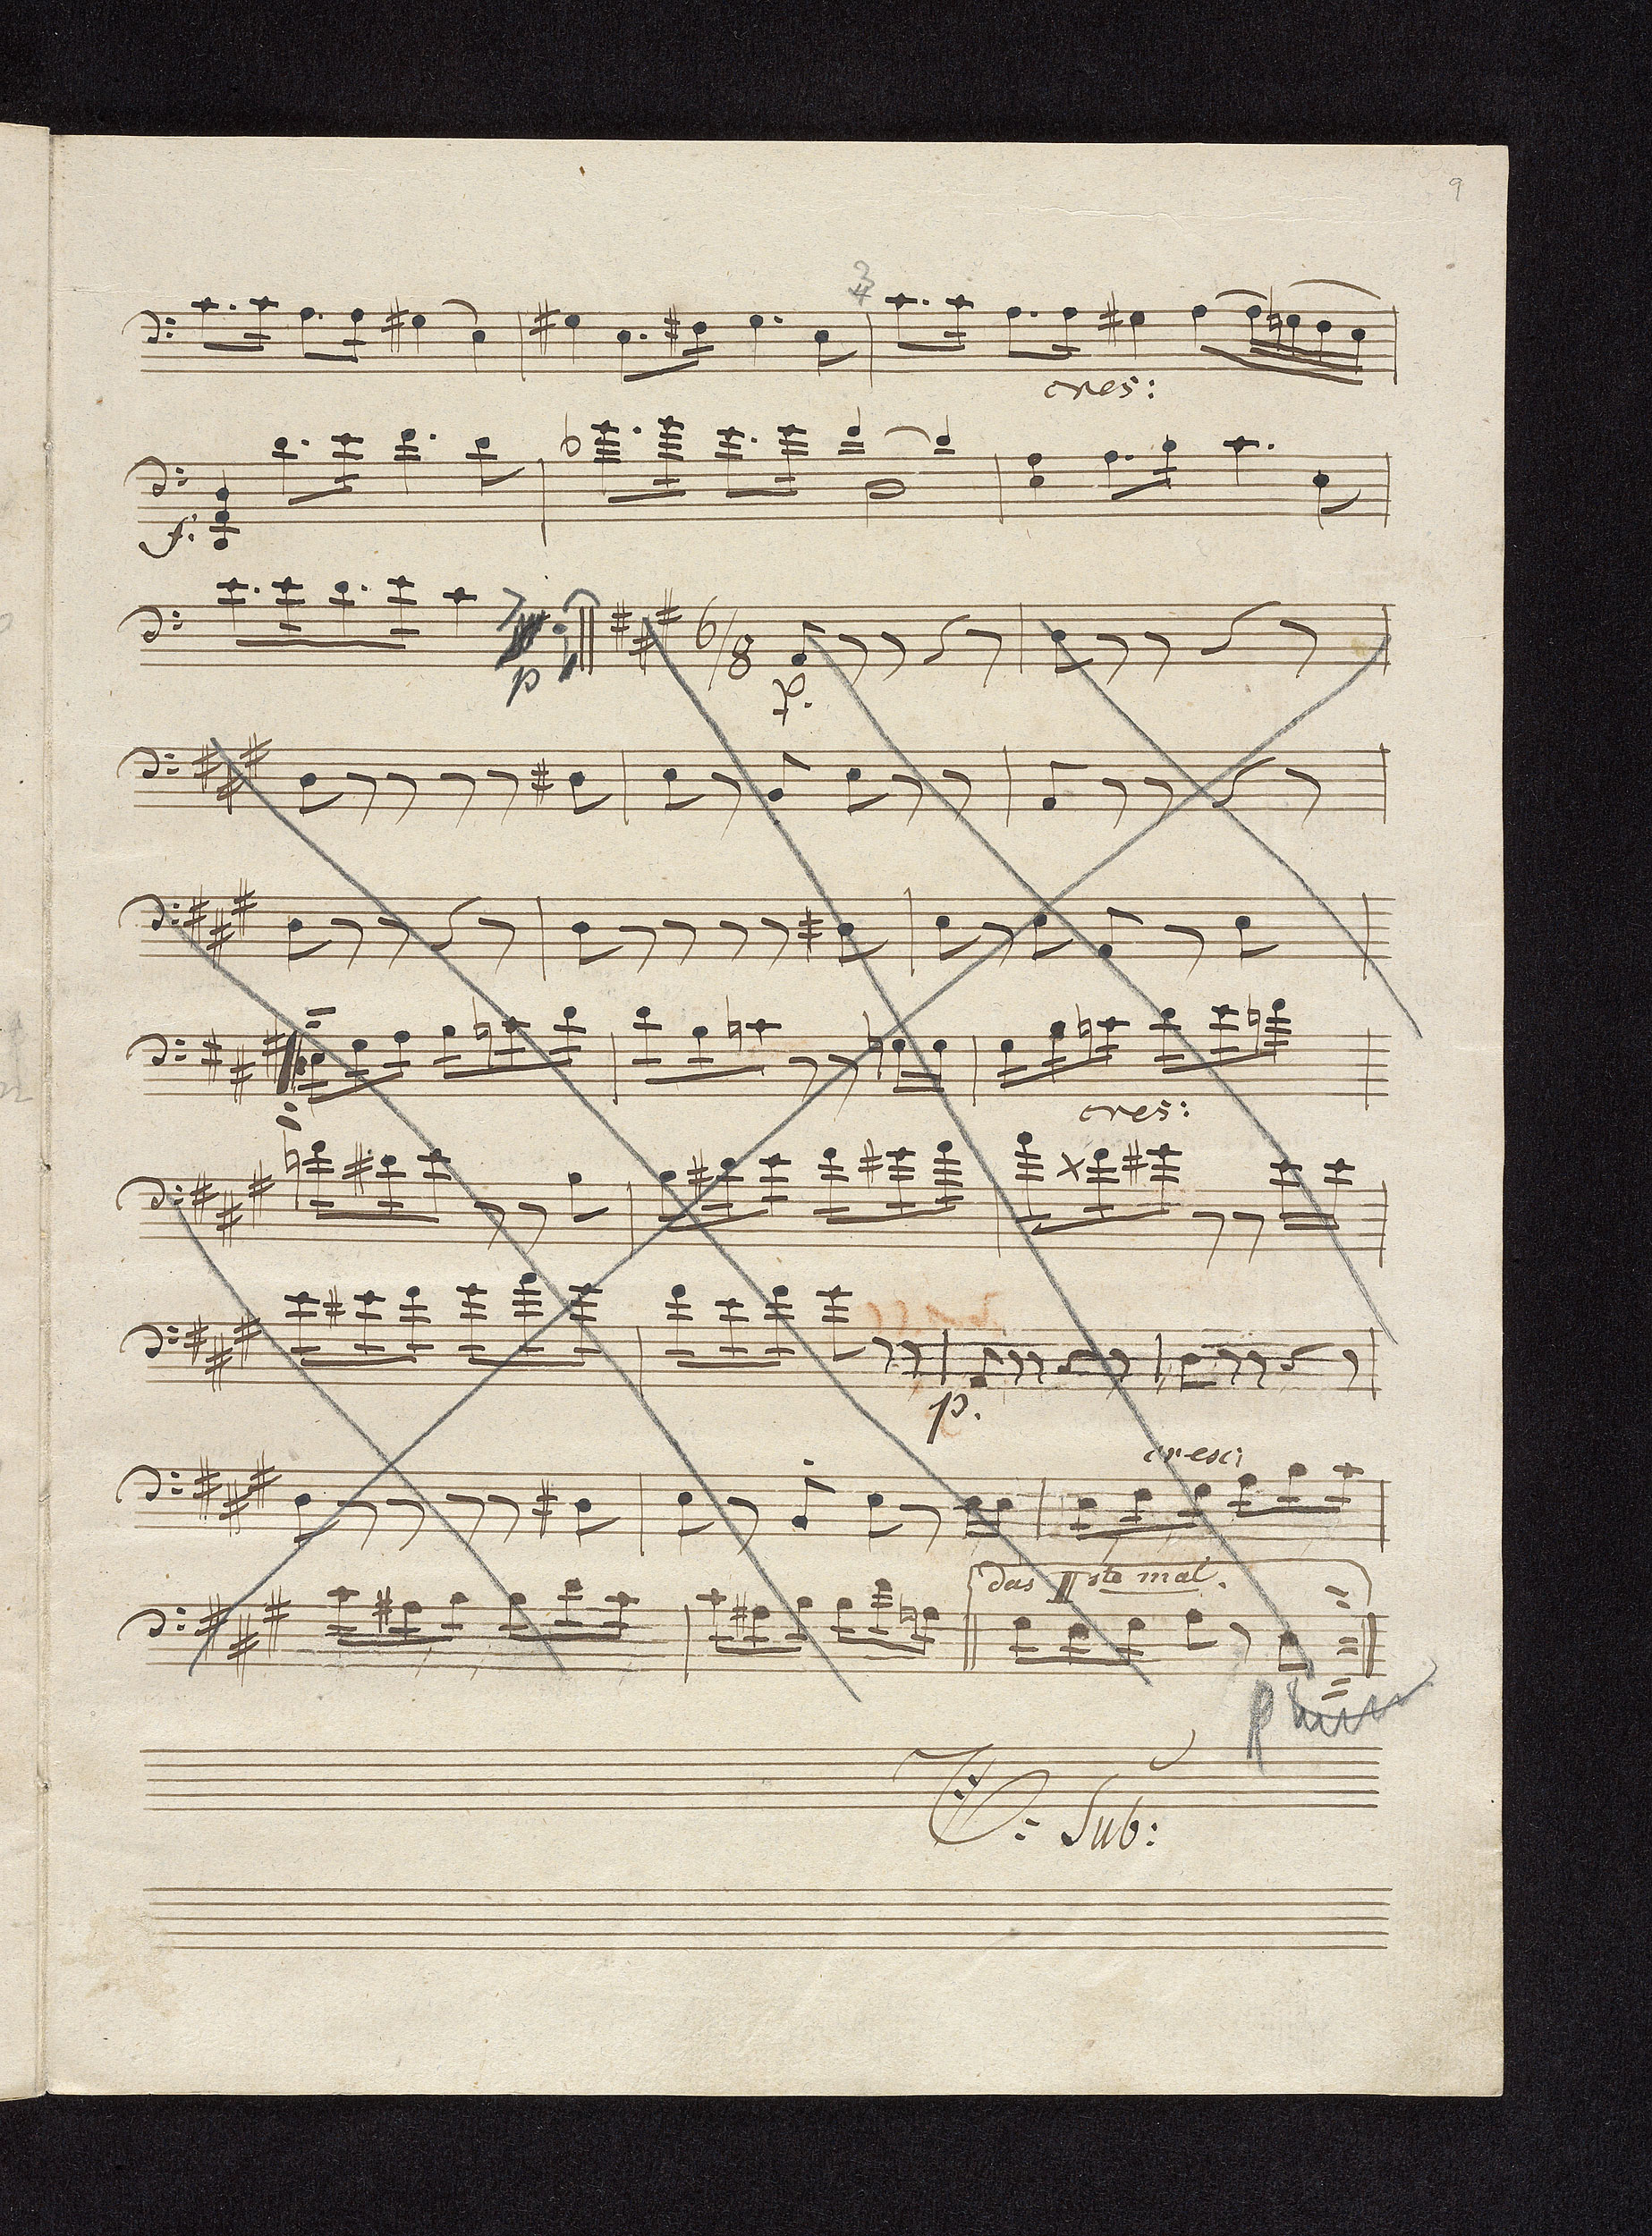 9
3
4
cres:
f:
p
6/8
p.
cres:
p.
cresc:
das II ste mal.
V: Sub: